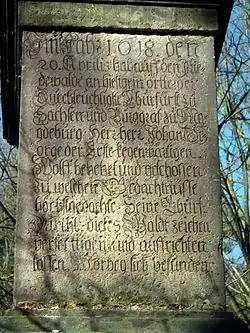 Im Jahr 1618. den
20. Aprilis hat auf den
hiesigem orte der
Durchleuchtigste Churfürst zu
Sachsen und Burggraf zu Mag
deburg Herr herr Johann Ge
orge der Erste gegenwärtigen
Wolff behezet und geschossen
zu welcher Gedächtnisse
hochstgedachte Seine Churf.
Durchl. dieses Waldt zeichen
verfertigen und aufrichten
lassen sich befunden